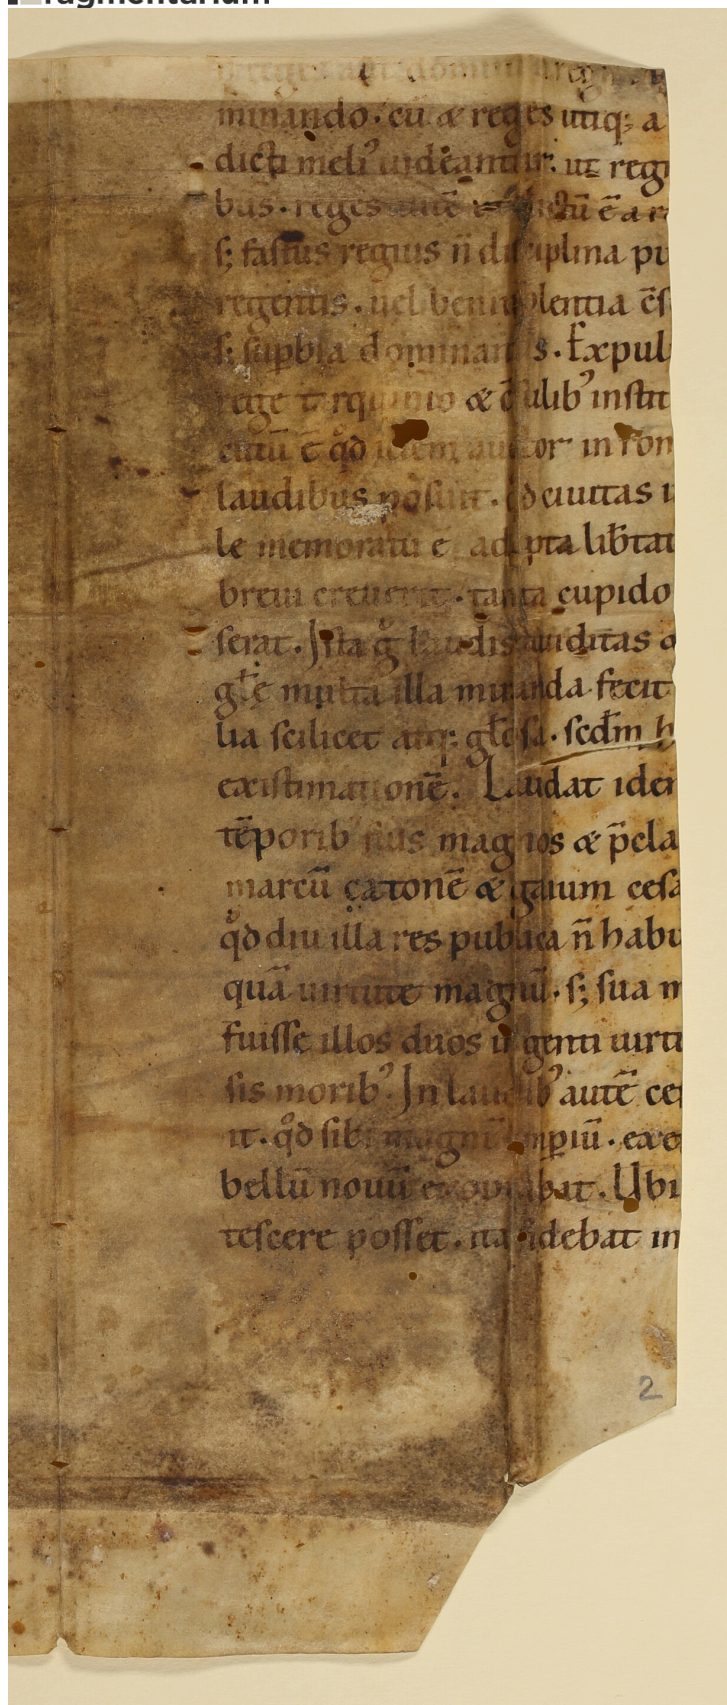 ragmentarium
minando · cū & reges utiq; a
dicti meli᾽ uideantur. ut regi
bus · reges autē ē a r
s; fastus regius n̄ disciplina pu
regentis. uel beniuolentia ēs
s; supbia dominantis. Expul
rege tarquinio & c̄sulib᾽ instit
cutū ē qd̊ idem auctor in rom
laudibus posuit. qd ciuitas i
le memoratu ē adepta lib̄tat
breui creuerit. tanta cupido
serat. Ista g̊ laudis auiditas
gl̄e multa illa miranda fecit
lia scilicet atq: gl̄osa. scd̄m h
existimationē. Laudat iden
tēporib᾽ suis magnos & p̄cla
marcū catonē & gaium cesa
qd̊ diu illa res publica n̄ habu
quā uirtute magnū. s; sua m
fuisse illos duos ingenti uirtu
sis morib᾽. In laudib᾽ autē ces
it. qd̊ sibi magnū imperiū. exe
bellū nouū exoptabat. Ubi
tescere posset. ita fidebat in
2